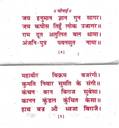 ॥ चौपाई ॥
जय हनुमान ज्ञान गुन सागर।
जय कपीस तिहुँ लोक उजागर॥
राम दूत अतुलित बल धामा।
अंजनि-पुत्र पवनसुत नामा॥
महाबीर बिक्रम बजरंगी।
कुमति निवार सुमति के संगी॥
कंचन बरन बिराज सुबेसा।
कानन कुंडल कुंचित केसा॥
हाथ बज्र औ ध्वजा बिराजै।